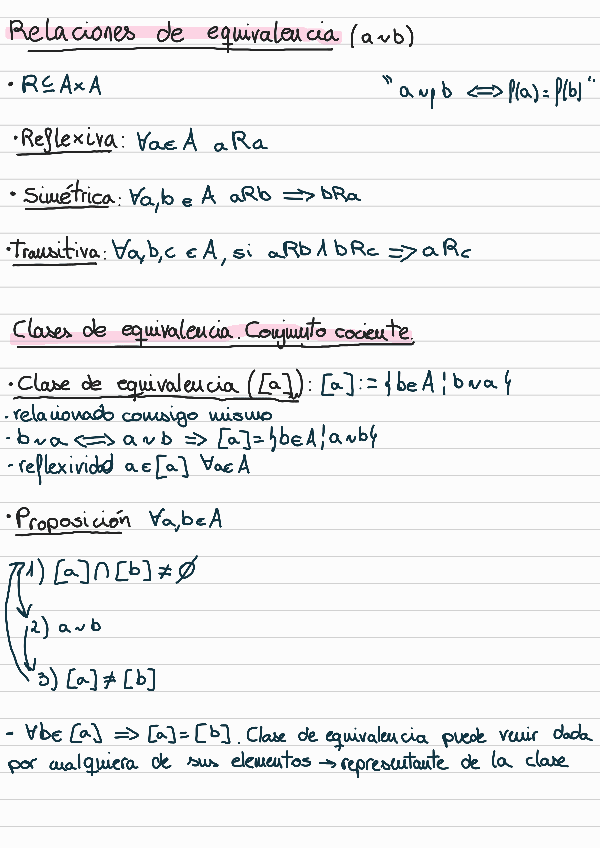 Relaciones de equivalencia (a∼b)
· R⊆A×A " a ∼ρ b ⟺ ρ(a) = ρ(b) "
· Reflexiva: ∀a∈A aRa
· Simétrica: ∀a,b ∈ A aRb ⟹ bRa
· Transitiva: ∀a,b,c ∈ A, si aRb ∧ bRc ⟹ aRc
Clases de equivalencia. Conjunto cociente.
· Clase de equivalencia ([a]): [a] := {b∈A ¦ b∼a}
- relacionado consigo mismo
- b∼a ⟺ a∼b ⟹ [a] = {b∈A ¦ a∼b}
- reflexividad a∈[a] ∀a∈A
· Proposición ∀a,b∈A
1) [a]∩[b] ≠ ∅
2) a∼b
3) [a] ≠ [b]
- ∀b∈[a] ⟹ [a]=[b]. Clase de equivalencia puede venir dada
por cualquiera de sus elementos → representante de la clase